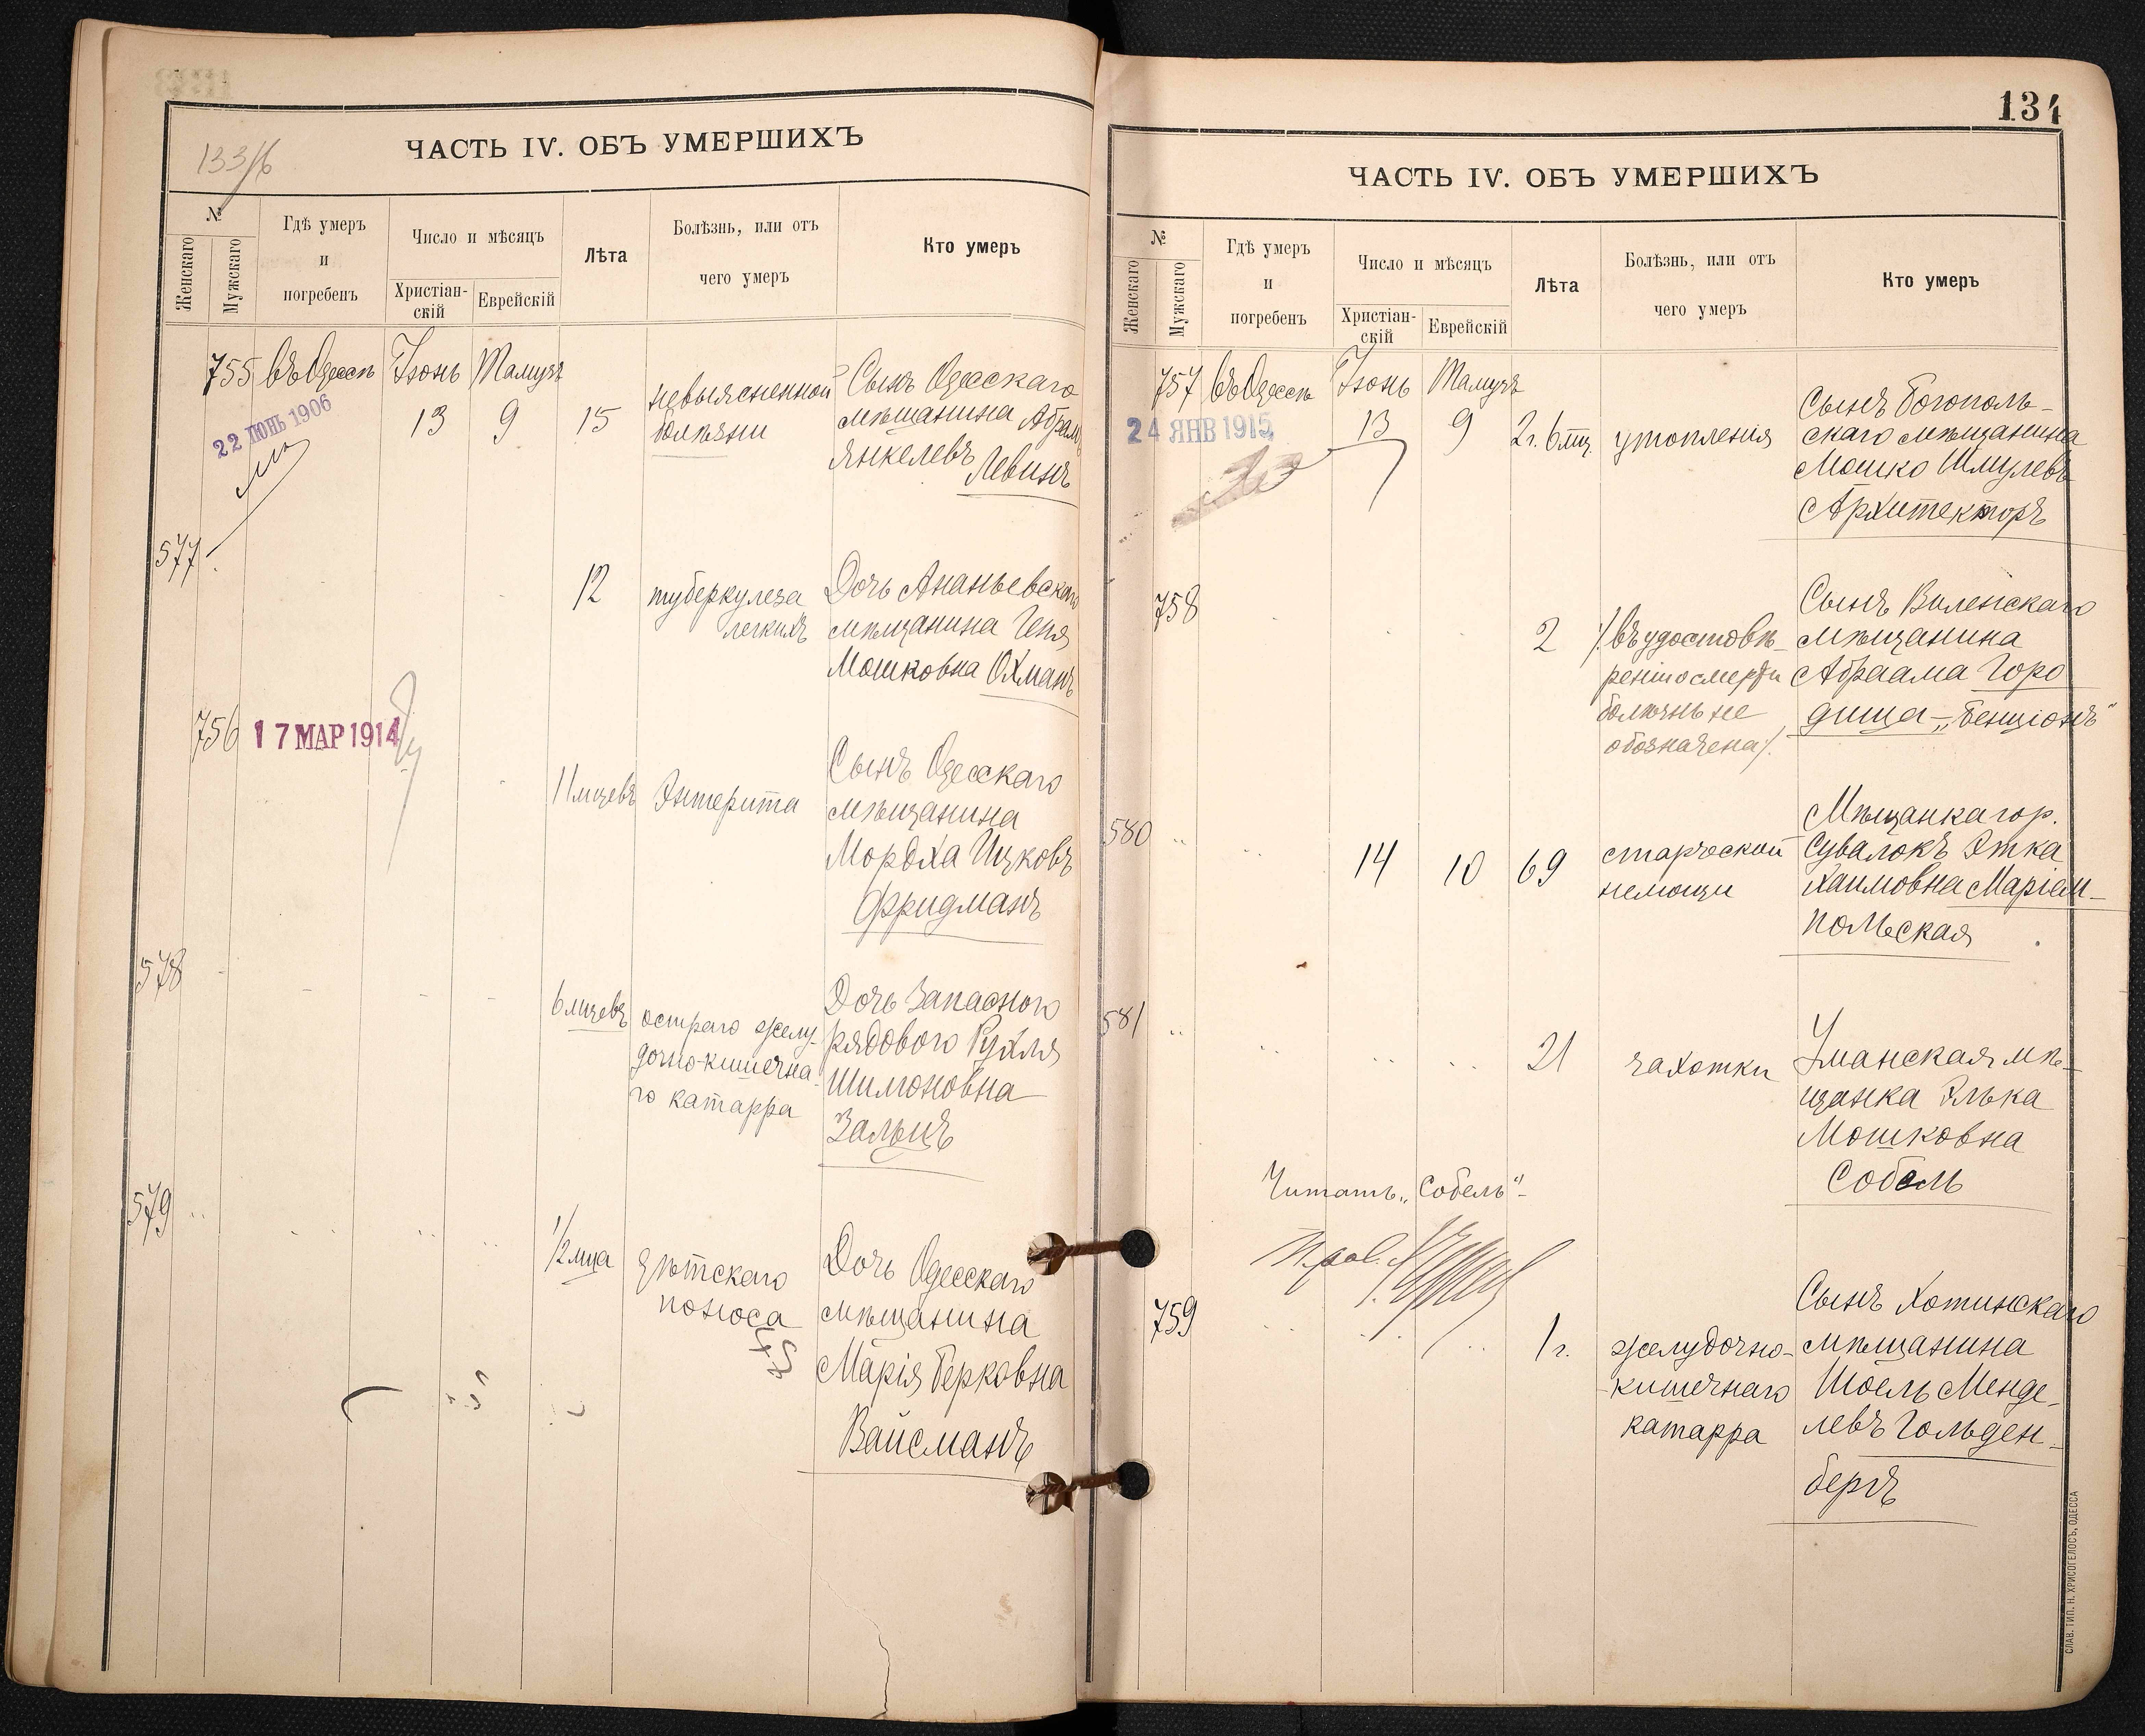 133/б
ЧАСТЬ IV. ОБЪ УМЕРШИХЪ
№
Женскаго
Мужскаго
Гдѣ умеръ
и
погребенъ
Число и мѣсяцъ
Христіан-
скій
Еврейскій
Лѣта
Болѣзнь, или отъ
чего умеръ
Кто умеръ
755 въ Одессѣ Іюнь Тамузъ
22 ІЮНЬ 1906
13 9 15
невыясненной
болѣзни
Сынъ Одесскаго
мѣщанина Абрамъ
Янкелевъ Левинъ
577
12
туберкулеза
легкихъ
Дочь Ананьевскаго
мѣщанина Геня
Мошковна Охманъ
756
17 МАР 1914
11 мцевъ Энтерита
Сынъ Одесскаго
мѣщанина
Мордха Ицковъ
Фридманъ
578
6 мцевъ
остраго желу-
дочно-кишечна-
го катарра
Дочь Запасного
рядового Рухля
Шимоновна
Зальцъ
579
1/2 мца
дѣтскаго
поноса
Дочь Одесскаго
мѣщанина
Марія Берковна
Вайсманъ
134
ЧАСТЬ IV. ОБЪ УМЕРШИХЪ
№
Женскаго
Мужскаго
Гдѣ умеръ
и
погребенъ
Число и мѣсяцъ
Христіан-
скій
Еврейскій
Лѣта
Болѣзнь, или отъ
чего умеръ
Кто умеръ
757 въ Одессѣ Іюнь Тамузъ
24 ЯНВ 1915
13 9 2г. 6 мц. утопленія
Сынъ Богополь-
скаго мѣщанина
Мошко Шмулевъ
Архитекторъ
758
2
/въ удостовѣ-
реніи о смерти
болѣзнь не
обозначена/.
Сынъ Виленскаго
мѣщанина
Абраама Горо
дища - „Бенціонъ"
580
14 10 69
старческой
немощи
Мѣщанка гор.
Сувалокъ Этка
Хаимовна Маріам-
польская
581
21 чахотки
Уманская мѣ-
щанка Элька
Мошковна
Собель
Читать „Собель"-
759
1 г.
желудочно-
кишечнаго
катарра
Сынъ Хотинскаго
мѣщанина
Шоель Менде-
левъ Гольден-
бергъ
СЛАВ. ТИП. Н. ХРИСОГЕЛОСЪ, ОДЕССА